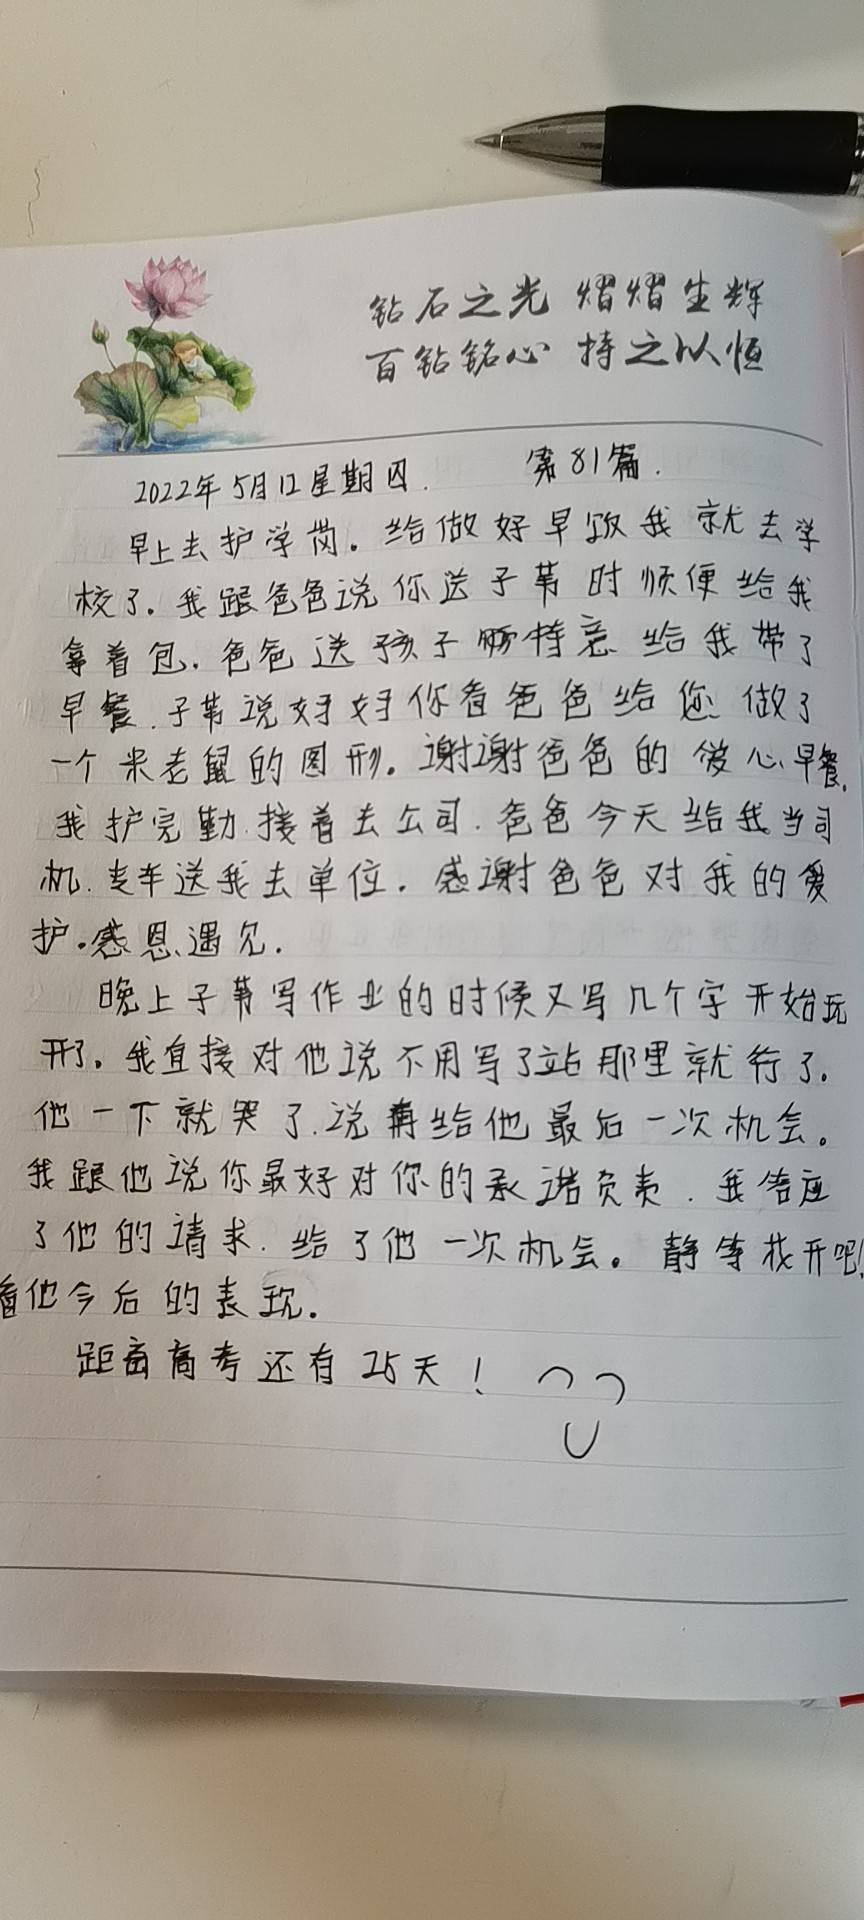 钻石之光 熠熠生辉
百钻铭心 持之以恒
2022年5月12星期四. 第81篇.
早上去护学岗。给做好早饭我就去学
校了.我跟爸爸说你送子苇时顺便给我
拿着包.爸爸送孩子时特意给我带了
早餐.子苇说好好你看爸爸给您做了
一个米老鼠的图形.谢谢爸爸的爱心早餐.
我护完勤.接着去公司.爸爸今天给我当司
机.专车送我去单位.感谢爸爸对我的爱
护.感恩遇见.
晚上子苇写作业的时候又写几个字开始玩
开了。我直接对他说不用写了站那里就行了.
他一下就哭了.说再给他最后一次机会。
我跟他说你最好对你的承诺负责.我答应
了他的请求.给了他一次机会。静等花开吧!
看他今后的表现.
距离高考还有25天!